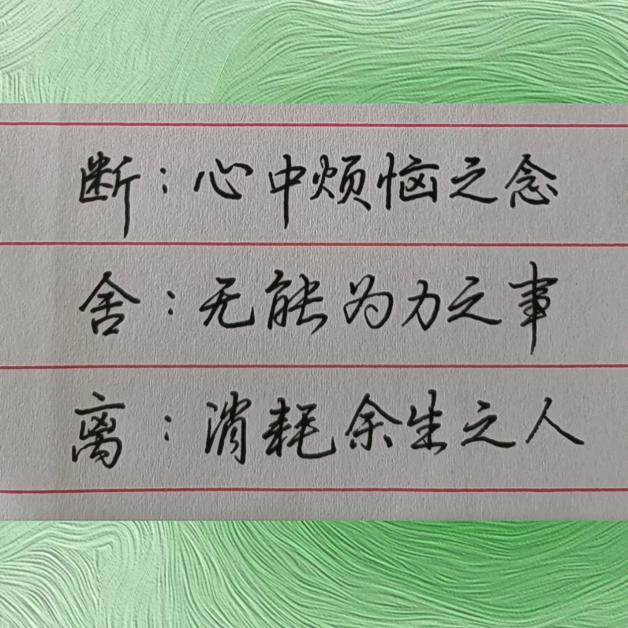 断：心中烦恼之念
舍：无能为力之事
离：消耗余生之人